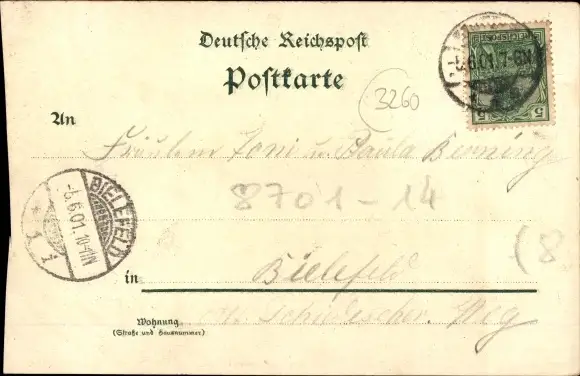 Deutsche Reichspost
Postkarte
3260
-5.6.01.7-8N
REICHSPOST
5 5
An
Fräulein Toni u. Paula
8701-14
BIELEFELD
-6.6.01.10-11N
1 1
(8
in Bielefeld
Wohnung
(Straße und Hausnummer)
Weg